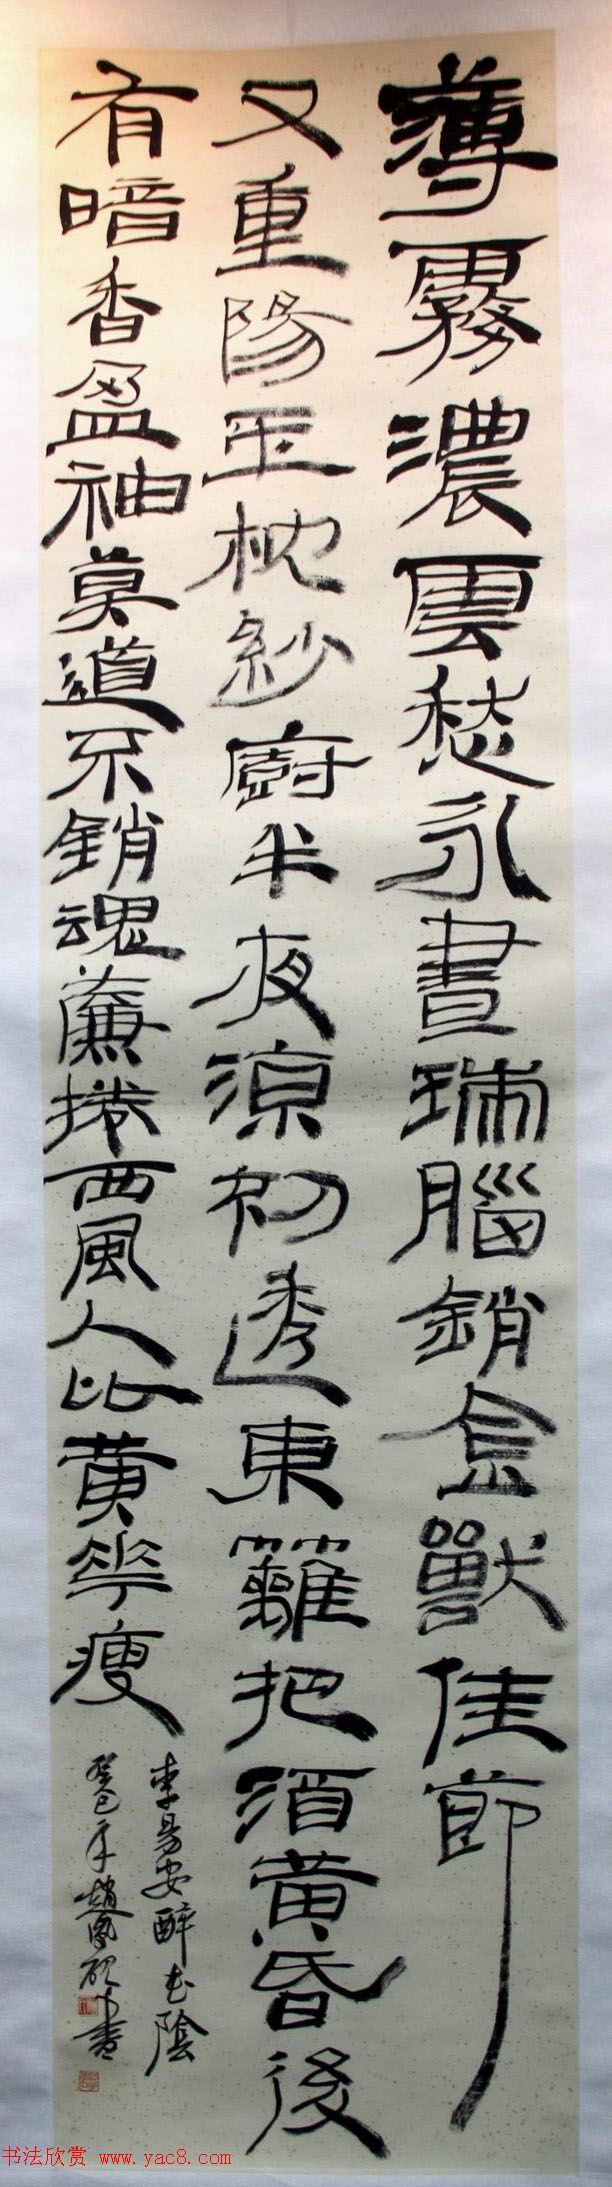 薄霧濃雲愁永晝瑞腦銷金獸佳節
又重陽玉枕紗廚半夜涼初透東籬把酒黃昏後
有暗香盈袖莫道不銷魂簾捲西風人比黃花瘦
李易安醉花陰
癸巳年趙鳳書
书法欣赏 www.yac8.com